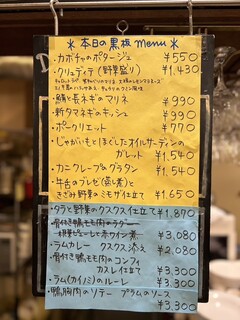 ＊本日の黒板 Menu＊
・カボチャのポタージュ ¥550
・クリュディテ(野菜盛り) ¥1,430
・鯖と長ネギのマリネ ¥990
・新タマネギのキッシュ ¥990
・ポークリエット ¥770
・じゃがいもとほぐしたオイルサーデンの
ガレット ¥1,540
・カニクレープ&グラタン ¥1,540
・牛舌のブレゼ(蒸し煮)と
きざみ野菜のミモザ仕立て ¥1,650
・タラと野菜のクスクス仕立て ¥1,870
・骨付き鴨モモ肉のラグー
根菜ピューレと赤ワイン煮 ¥3,080
・ラムカレー クスクス添え ¥2,080
・骨付き鴨モモ肉のコンフィ
カスレ仕立て ¥3,300
・ラム(カイノミ)のルーレ ¥3,300
・鴨胸肉のソテー プラムのソース
¥3,300